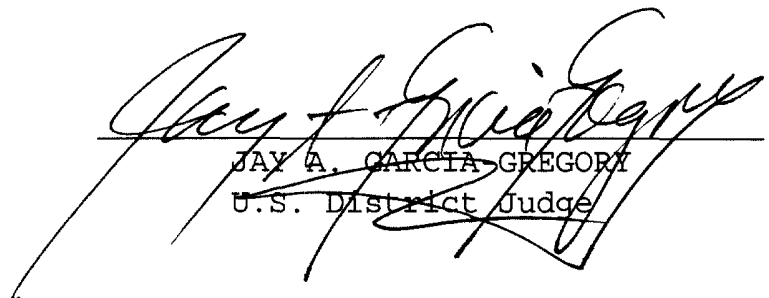 Jay A. Garcia Gregory
JAY A. GARCIA-GREGORY
U.S. District Judge